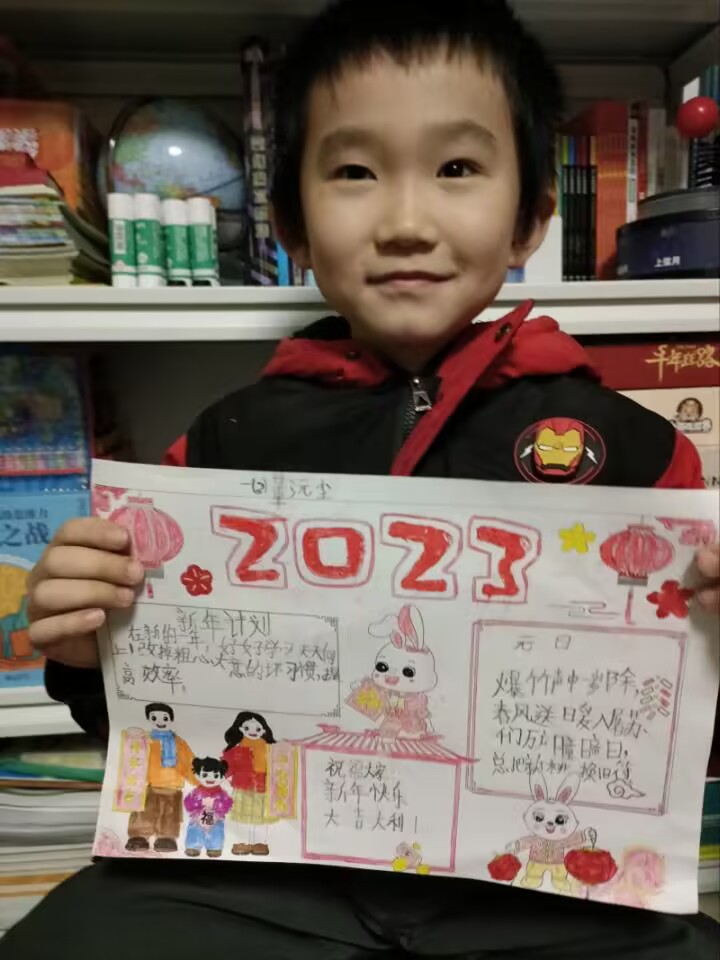 上弦月
千年丝路
之战
2023
新年计划
在新的一年,好好学习天天向
上!改掉粗心大意的坏习惯,提
高效率,
元日
爆竹声中一岁除,
春风送暖入屠苏
万户曈曈日,
总把新桃换旧符
祝福大家
新年快乐
大吉大利!
福